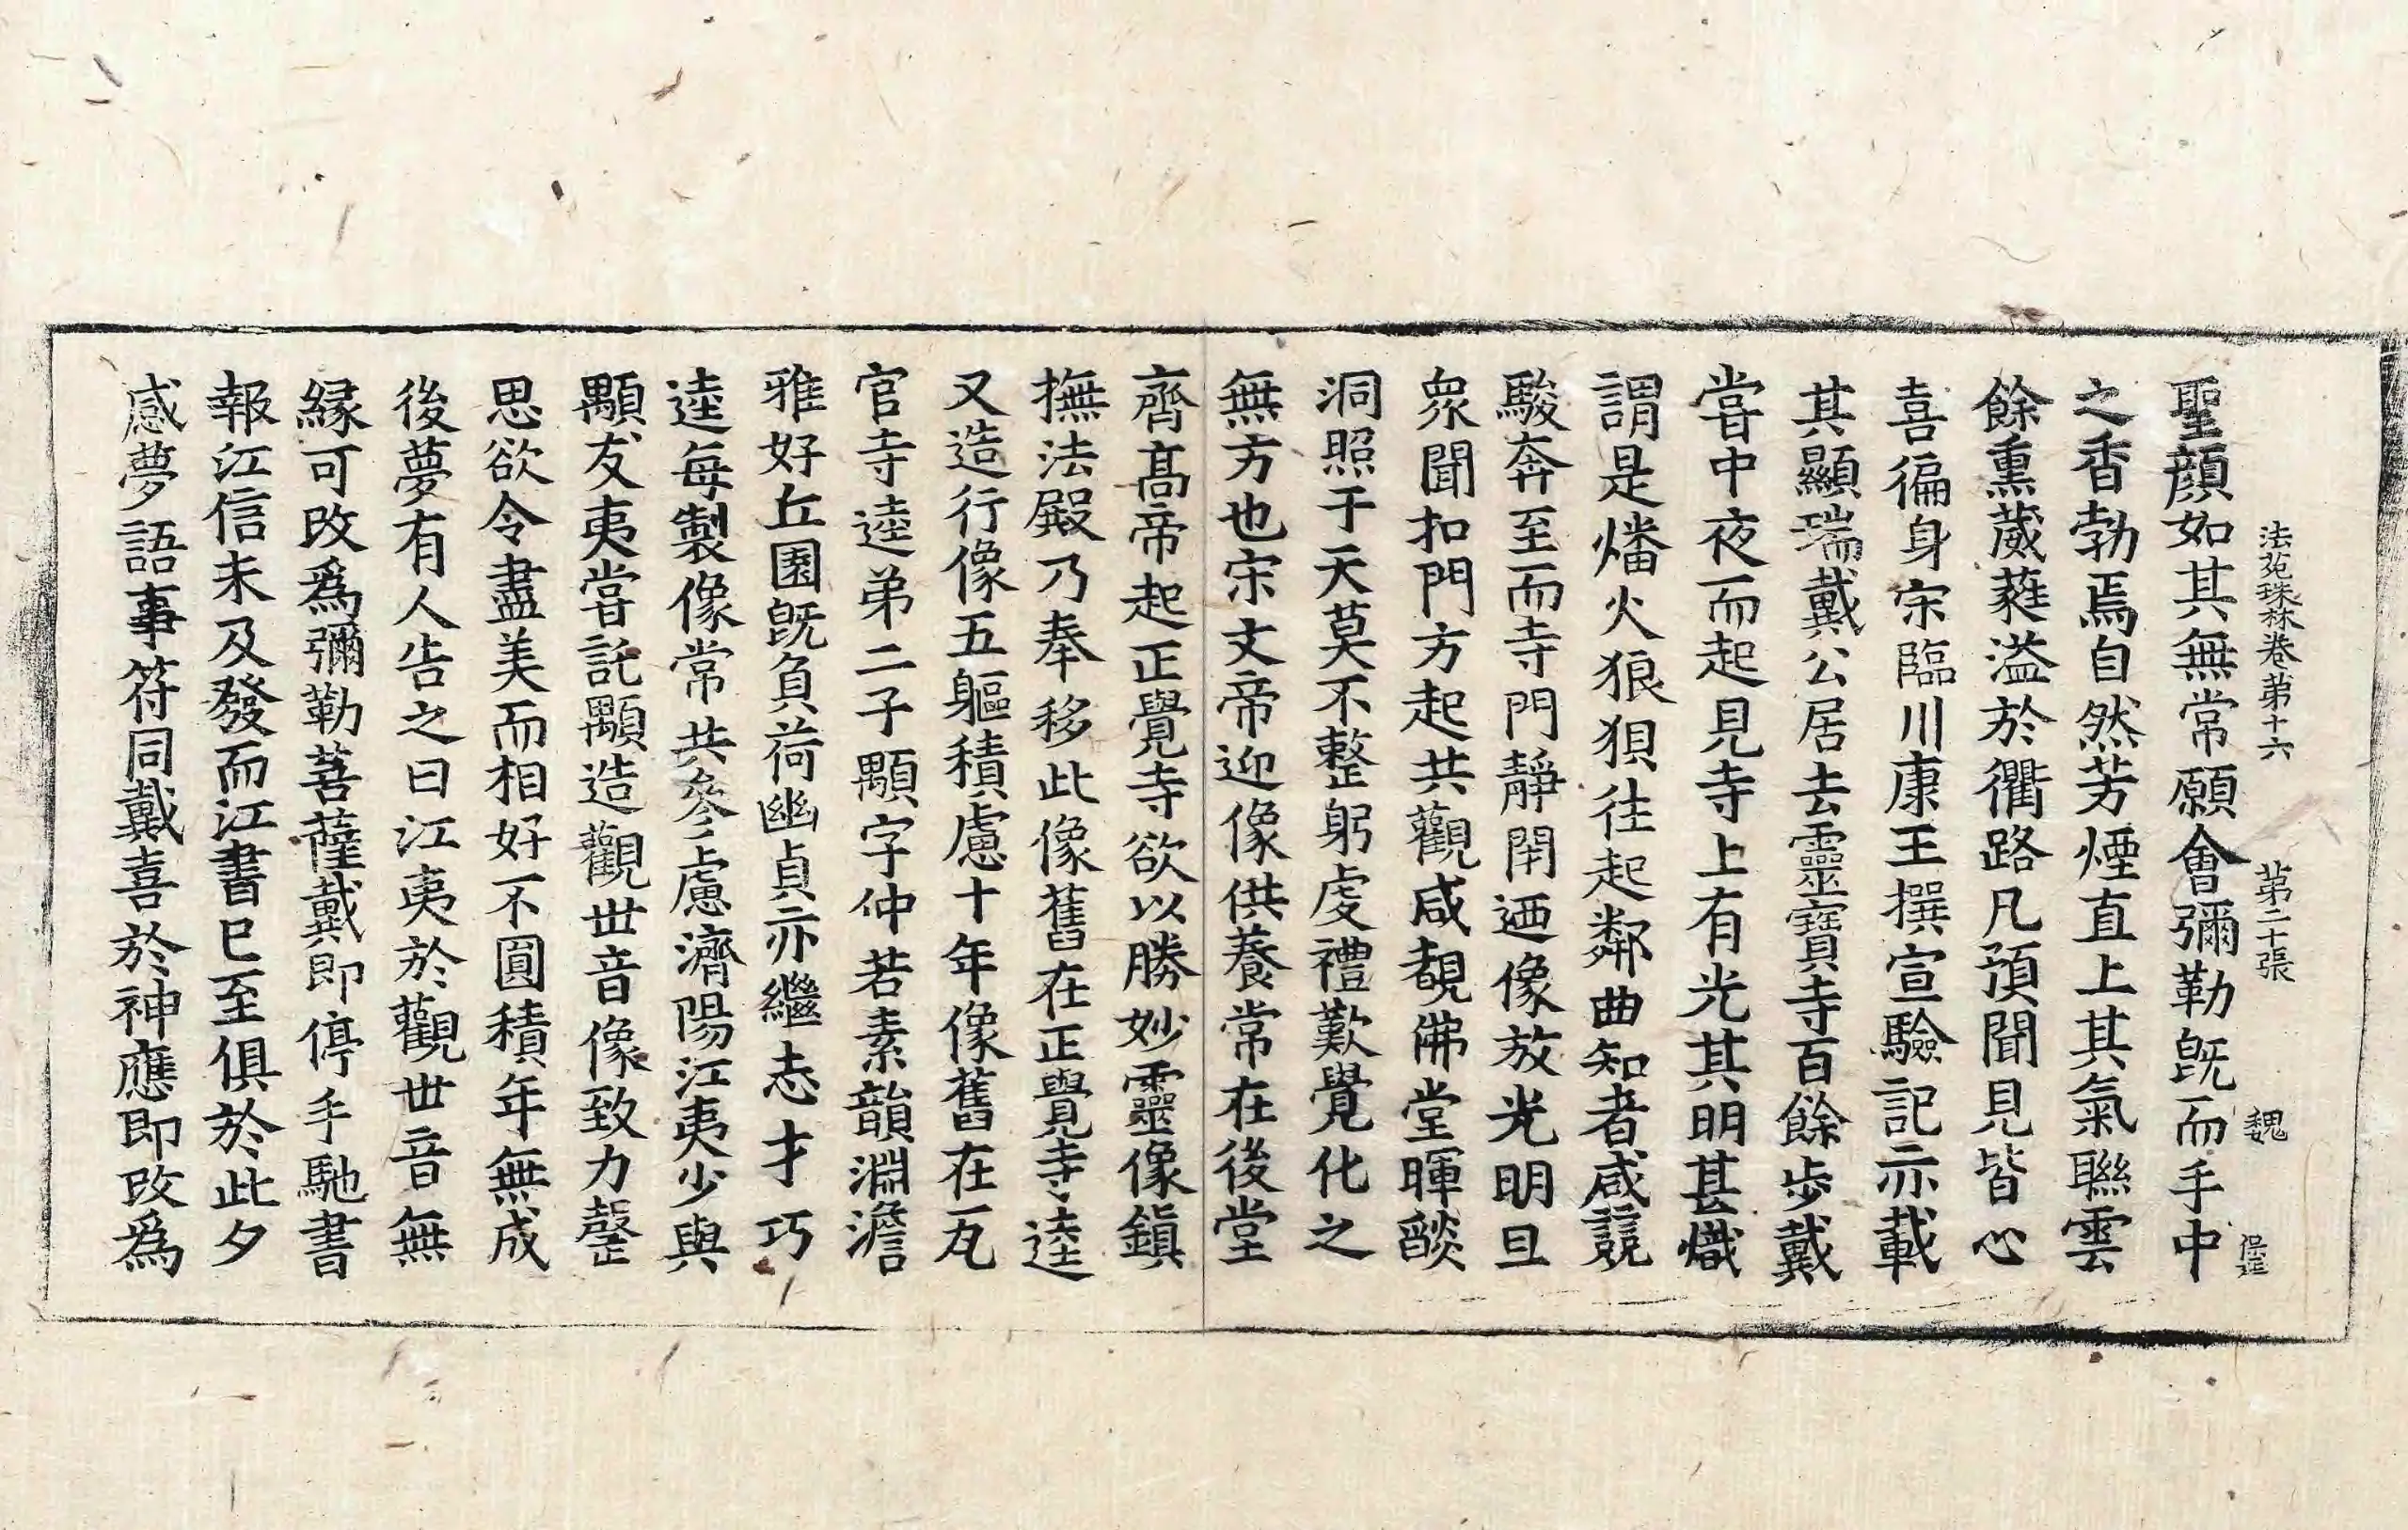 法苑珠林卷苐十六　苐二十張　魏
聖顔如其無常願會彌勒既而手中
之香勃焉自然芳煙直上其氣聯雲
餘熏葳蕤溢於衢路凡預聞見皆心
喜徧身宋臨川康王撰宣驗記亦載
其顯瑞戴公居去靈寶寺百餘步戴
甞中夜而起見寺上有光其明甚熾
謂是燔火狼狽往起鄰曲知者咸競
駿奔至而寺門靜閇迺像放光明旦
衆聞扣門方起共觀咸覩佛堂暉燄
洞照于天莫不整躬虔禮歎覺化之
無方也宋文帝迎像供養常在後堂
齊髙帝起正覺寺欲以勝妙靈像鎮
撫法殿乃奉移此像舊在正覺寺逵
又造行像五軀積慮十年像舊在瓦
官寺逵弟二子顒字仲若素韻淵澹
雅好丘園既負荷幽貞亦繼志才巧
逵每製像常共叅慮濟陽江夷少與
顒友夷甞託顒造觀世音像致力罄
思欲令盡美而相好不圓積年無成
後夢有人告之曰江夷於觀世音無
縁可改爲彌勒菩薩戴即停手馳書
報江信未及發而江書已至俱於此夕
感夢語事符同戴喜於神應即改爲